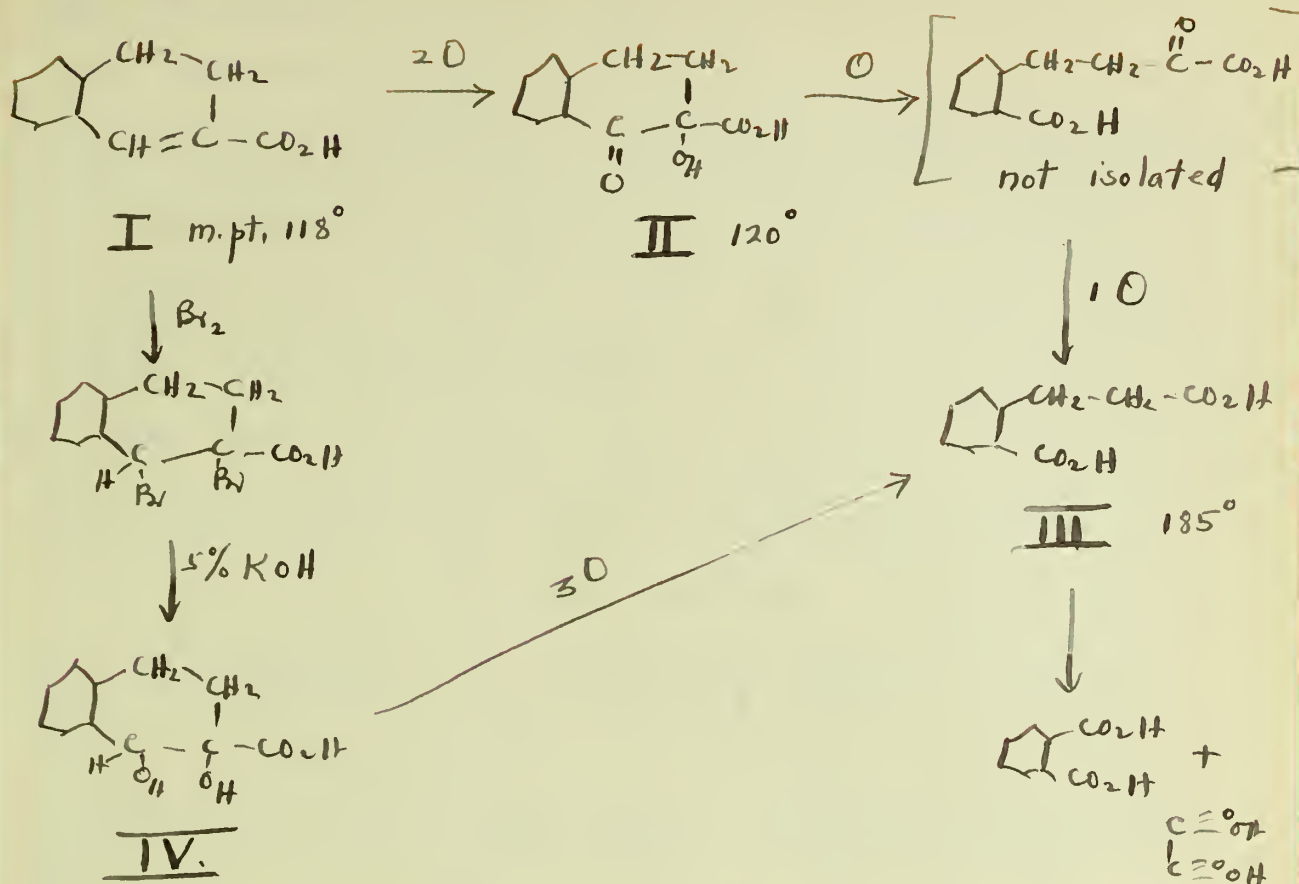 CH2 CH2 CH = C - CO2H
I m.pt. 118°
2O
CH2-CH2 C - C - CO2H O OH
II 120°
O
CH2-CH2-C-CO2H O CO2H
not isolated
Br2
CH2-CH2 C - C - CO2H H Br Br
5% KOH
CH2 CH2 C - C - CO2H H OH OH
IV.
3O
1 O
CH2-CH2-CO2H CO2H
III 185°
CO2H + CO2H
C = O OH
C = O OH